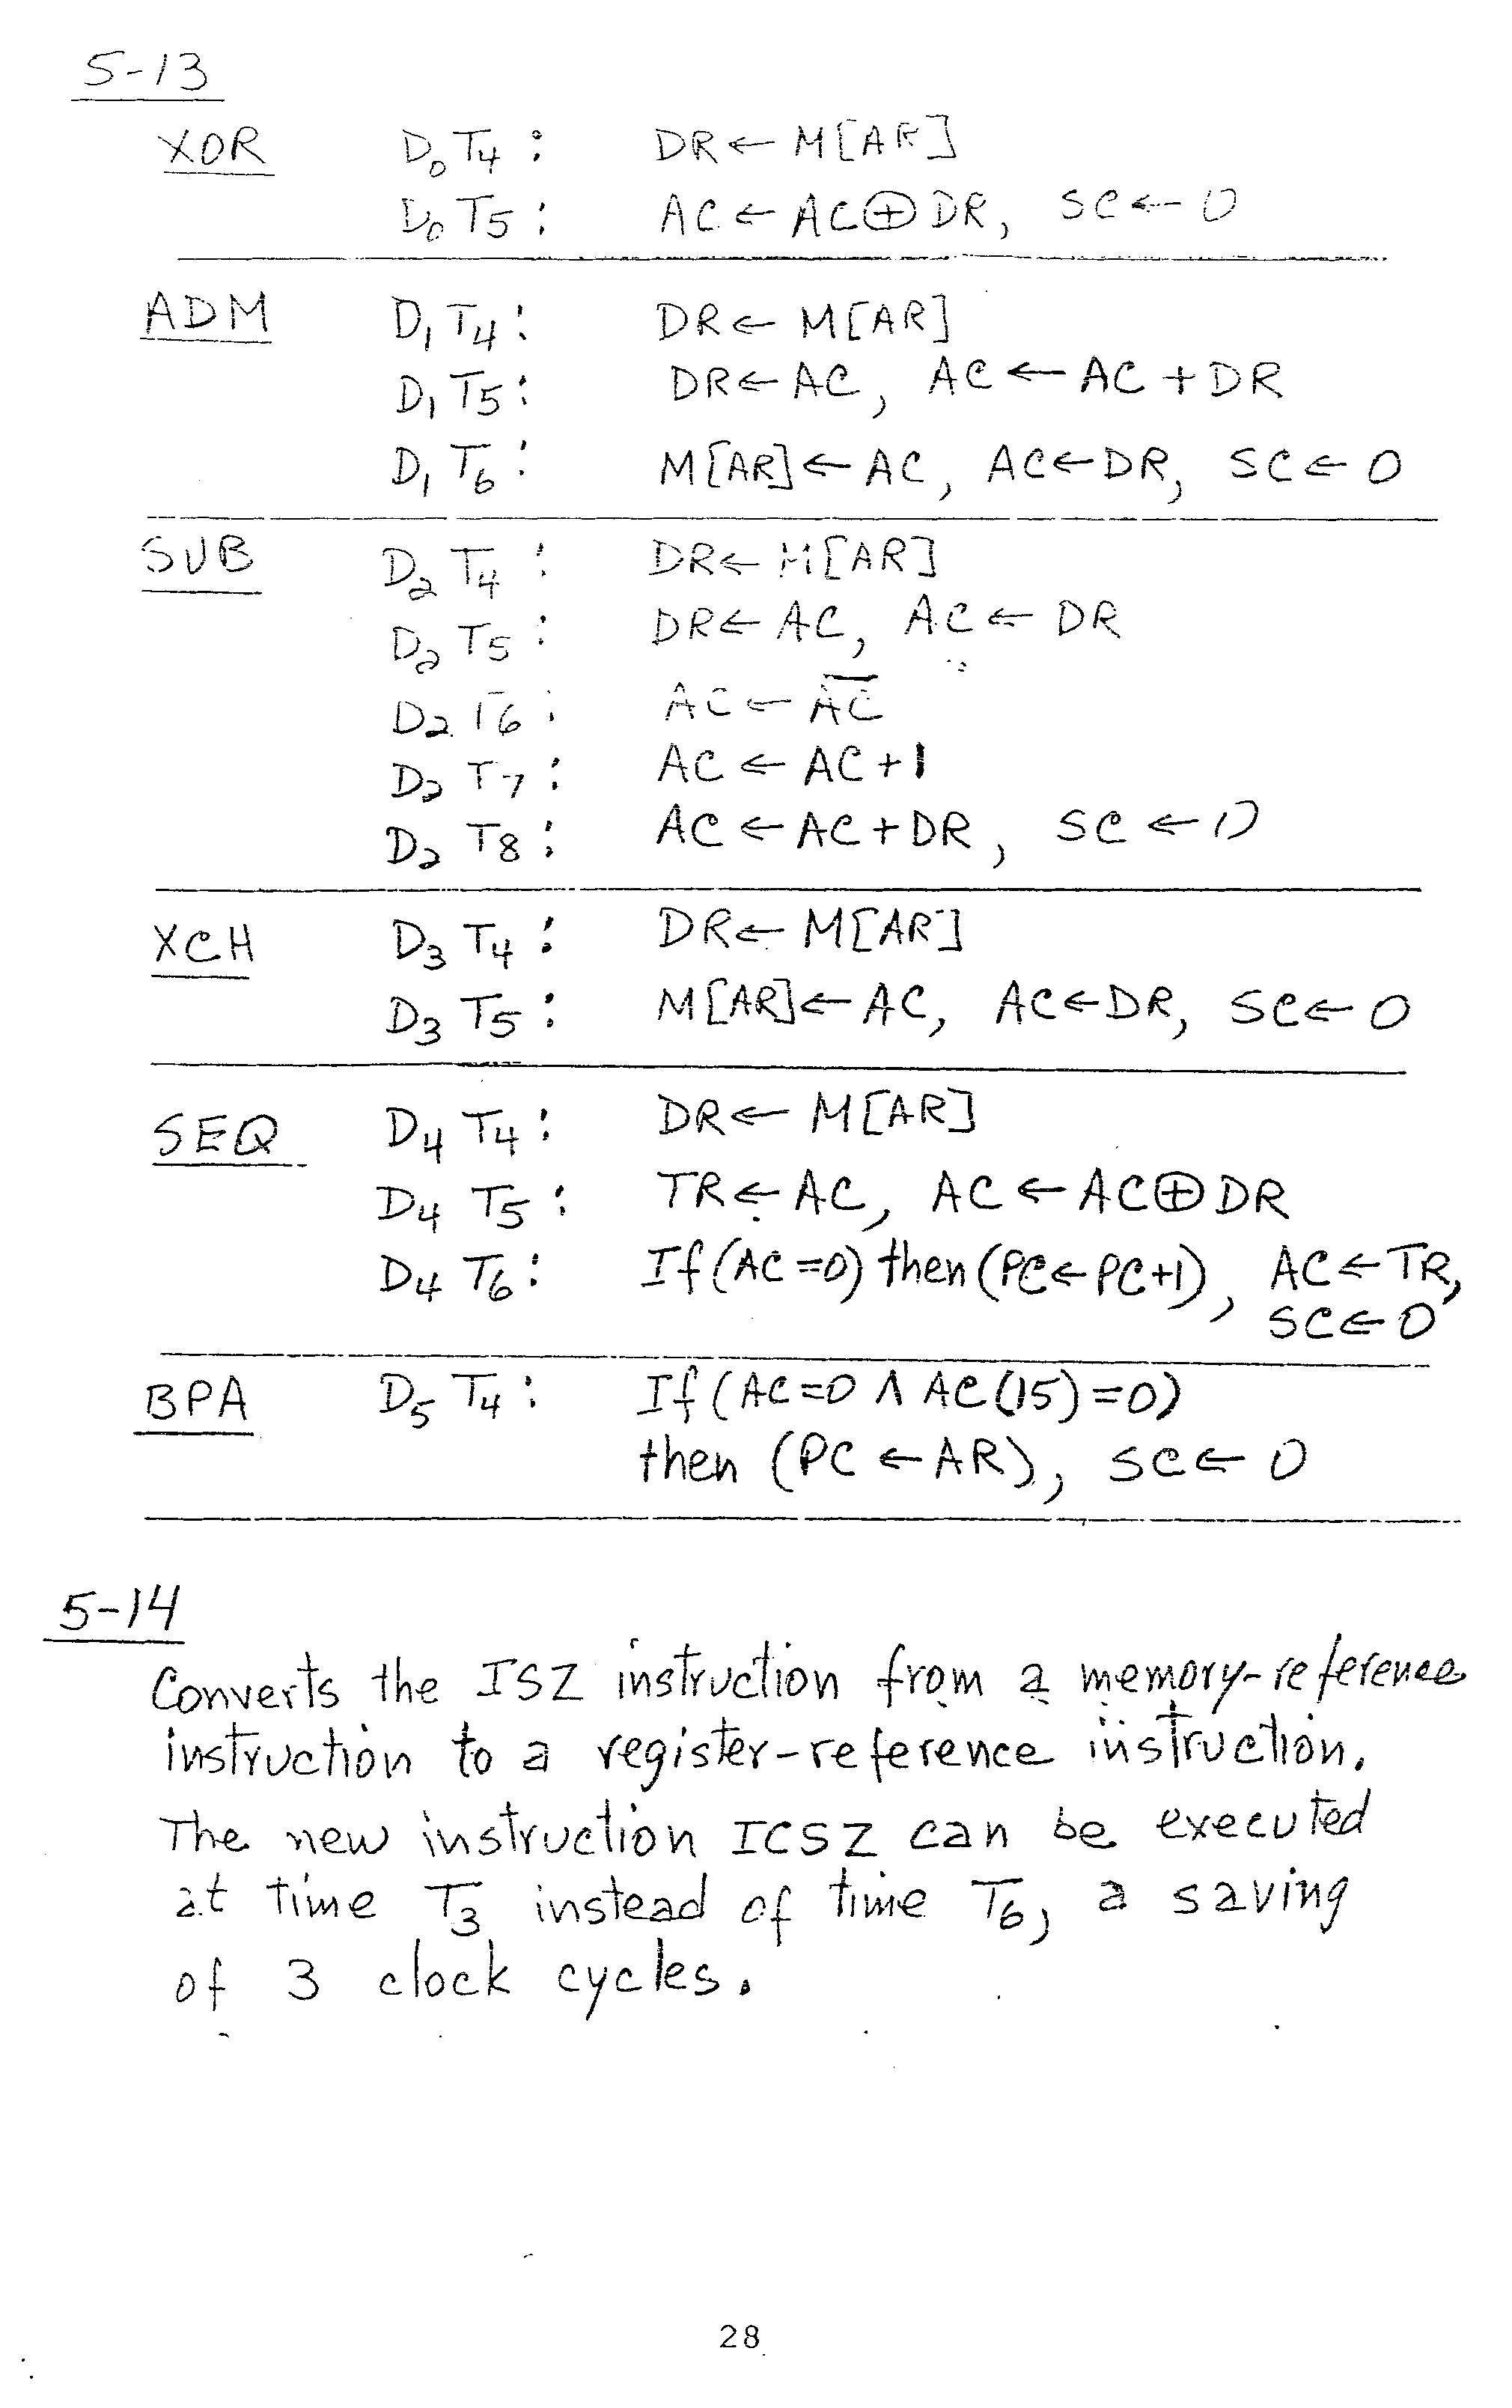 5-13
XOR D₀T₄: DR ← M[AR]
D₀T₅: AC ← AC ⊕ DR, SC ← 0
ADM D₁T₄: DR ← M[AR]
D₁T₅: DR ← AC, AC ← AC + DR
D₁T₆: M[AR] ← AC, AC ← DR, SC ← 0
SUB D₂T₄: DR ← M[AR]
D₂T₅: DR ← AC, AC ← DR
D₂T₆: AC ← A̅C̅
D₂T₇: AC ← AC + 1
D₂T₈: AC ← AC + DR, SC ← 0
XCH D₃T₄: DR ← M[AR]
D₃T₅: M[AR] ← AC, AC ← DR, SC ← 0
SEQ D₄T₄: DR ← M[AR]
D₄T₅: TR ← AC, AC ← AC ⊕ DR
D₄T₆: If (AC = 0) then (PC ← PC + 1), AC ← TR,
SC ← 0
BPA D₅T₄: If (AC = 0 ∧ AC(15) = 0)
then (PC ← AR), SC ← 0
5-14
Converts the ISZ instruction from a memory-reference
instruction to a register-reference instruction.
The new instruction ICSZ can be executed
at time T₃ instead of time T₆, a saving
of 3 clock cycles.
28